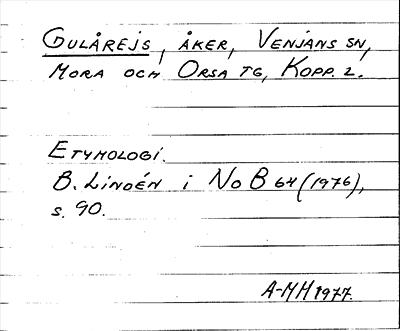 GULÅREJS, ÅKER, VENJANS SN,
MORA OCH ORSA TG, KOPP. L.
ETYMOLOGI.
B. LINDÉN i NoB 64 (1976),
s. 90.
A-MH 1977.